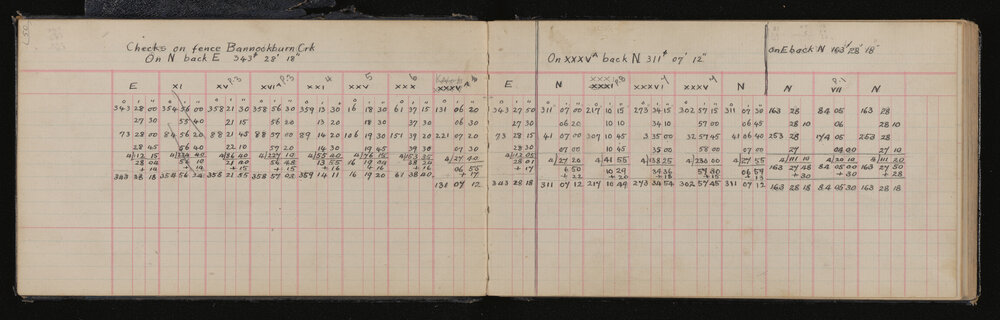 Checks on fence Bannockburn Crk
On N back E 343° 28' 18"
On XXXV^A back N 311° 07' 12"
on E back N 163° 28' 18"
E XI XV P.3 XVI^A P.3 XXI 4 XXV 5 XXX 6 XXXV^A E N XXXI P.8 XXXV 7 XXXV 7 N N VII P.1 N
° ' " ° ' " ° ' " ° ' " ° ' " ° ' " ° ' " ° ' " ° ' " ° ' " ° ' " ° ' " ° ' " ° ' "
343 28 00 354 56 00 358 21 30 358 56 30 359 13 30 16 18 30 61 37 15 131 06 20 343 27 50 311 07 00 217 10 45 273 34 15 302 57 15 311 07 30 163 28 84 05 163 28
27 30 55 40 21 15 56 20 13 20 18 30 37 30 06 30 27 30 06 20 10 10 34 10 57 00 06 45 28 10 06 28 10
73 28 00 84 56 20 88 21 45 88 57 00 89 14 20 106 19 30 151 39 20 221 07 20 73 28 15 41 07 00 307 10 45 3 35 00 32 57 45 41 06 40 253 28 174 05 253 28
28 45 56 40 22 10 57 20 14 30 19 45 39 30 07 30 28 30 07 00 10 45 35 00 58 00 07 00 27 04 00 27 10
4/12 15 4/224 40 4/86 40 4/227 10 4/55 40 4/76 15 4/153 35 4/27 40 4/12 05 4/27 20 4/41 55 4/138 25 4/230 00 4/27 55 4/111 10 4/20 10 4/111 20
28 04 56 10 21 40 56 48 13 55 19 04 38 24 06 55 28 01 6 50 10 29 34 36 57 30 06 59 163 27 48 84 05 00 163 27 50
+ 14 + 14 + 15 + 15 + 16 + 16 + 16 + 17 + 17 + 22 + 20 + 18 + 15 + 13 + 30 + 30 + 28
343 28 18 354 56 24 358 21 55 358 57 03 359 14 11 16 19 20 61 38 40 131 07 12 343 28 18 311 07 12 217 10 49 273 34 54 302 57 45 311 07 12 163 28 18 84 05 30 163 28 18